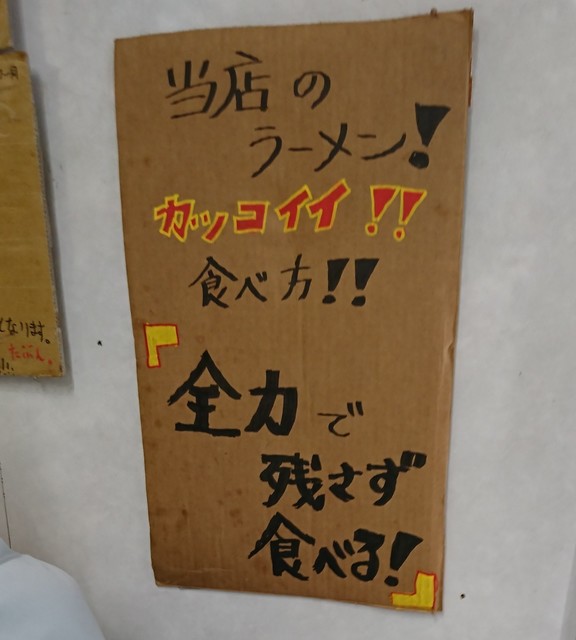 当店の
ラーメン!
カッコイイ!!
食べ方!!
『全力で
残さず
食べる!』
となります。
たぶん。